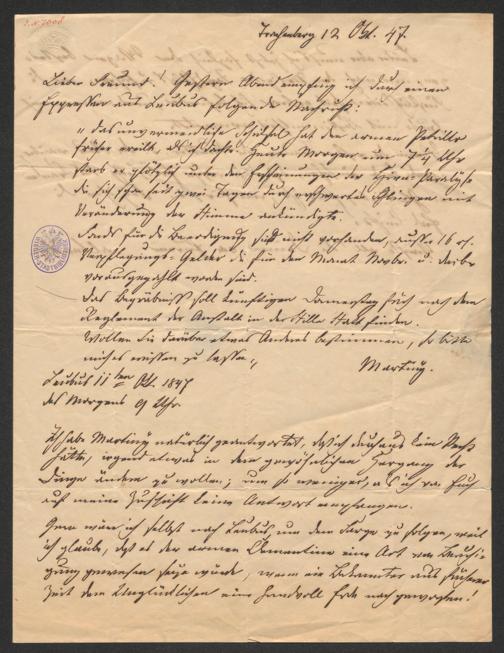 Trachenberg 12 Okt. 47.
Lieber Freund! Gestern Abend empfing ich durch einen
Expressen aus Leubus folgende Nachricht:
„das unvermeidliche Schicksal hat den armen
früher ereilt, als ich dachte. Heute Morgen um 7 1/4 Uhr
starb er plötzlich unter den Erscheinungen der Hirn-Paralyse
die sich schon seit zwei Tagen durch erschwertes Schlingen mit
Veränderung der Stimme ankündigte.
Fonds für die Beerdigung sind nicht vorhanden, außer 16 r.
Verpflegungs-Gelder die für den Monat Novbr. u. Decbr
vorausgezahlt worden sind.
Das Begräbniß soll künftigen Donnerstag früh nach dem
Reglement der Anstalt in der Stille Statt finden.
Wollen Sie darüber etwas Anders bestimmen, so bitte
mich's wissen zu lassen„ Martiny.
Leubus 11ten Okt. 1847
des Morgens 9 Uhr.
Ich habe Martiny natürlich geantwortet, daß ich durchaus kein Recht
hätte, irgend etwas in dem gewöhnlichen Hergang der
Dinge ändern zu wollen; um so weniger, als ich von
auf meine Zuschrift keine Antwort empfangen.
Gern wäre ich selbst nach Leubus, um dem Sarge zu folgen, weil
ich glaube, daß es der armen Clementine eine Art von Beruhi-
gung gewesen seyn würde, wenn ein Bekannter aus früherer
Zeit dem Unglücklichen eine Handvoll Erde nachgeworfen!